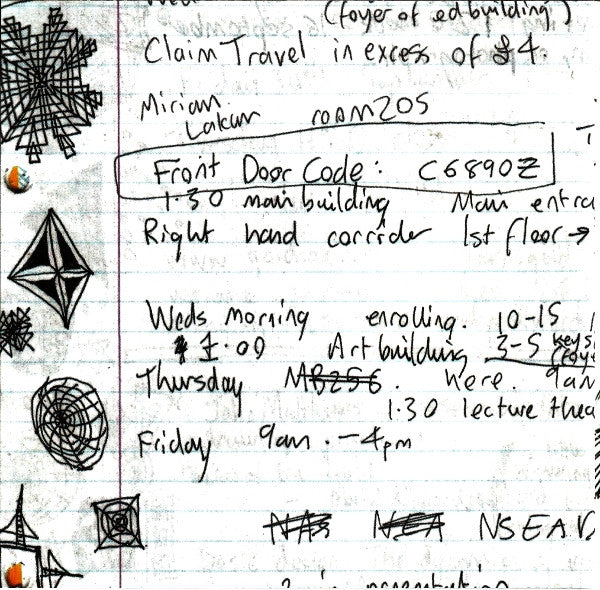 (foyer of ed building)
Claim Travel in excess of £4.
Mirian
Lakun room 205
Front Door Code: C6890Z
1.30 main building Main entra
Right hand corrider 1st floor →
Weds morning enrolling. 10-15
£1.00 Art building 3-5 keys
Thursday MB256. here. 9am
1.30 lecture thea
Friday 9am. - 4pm
NAS NEA NSEAD